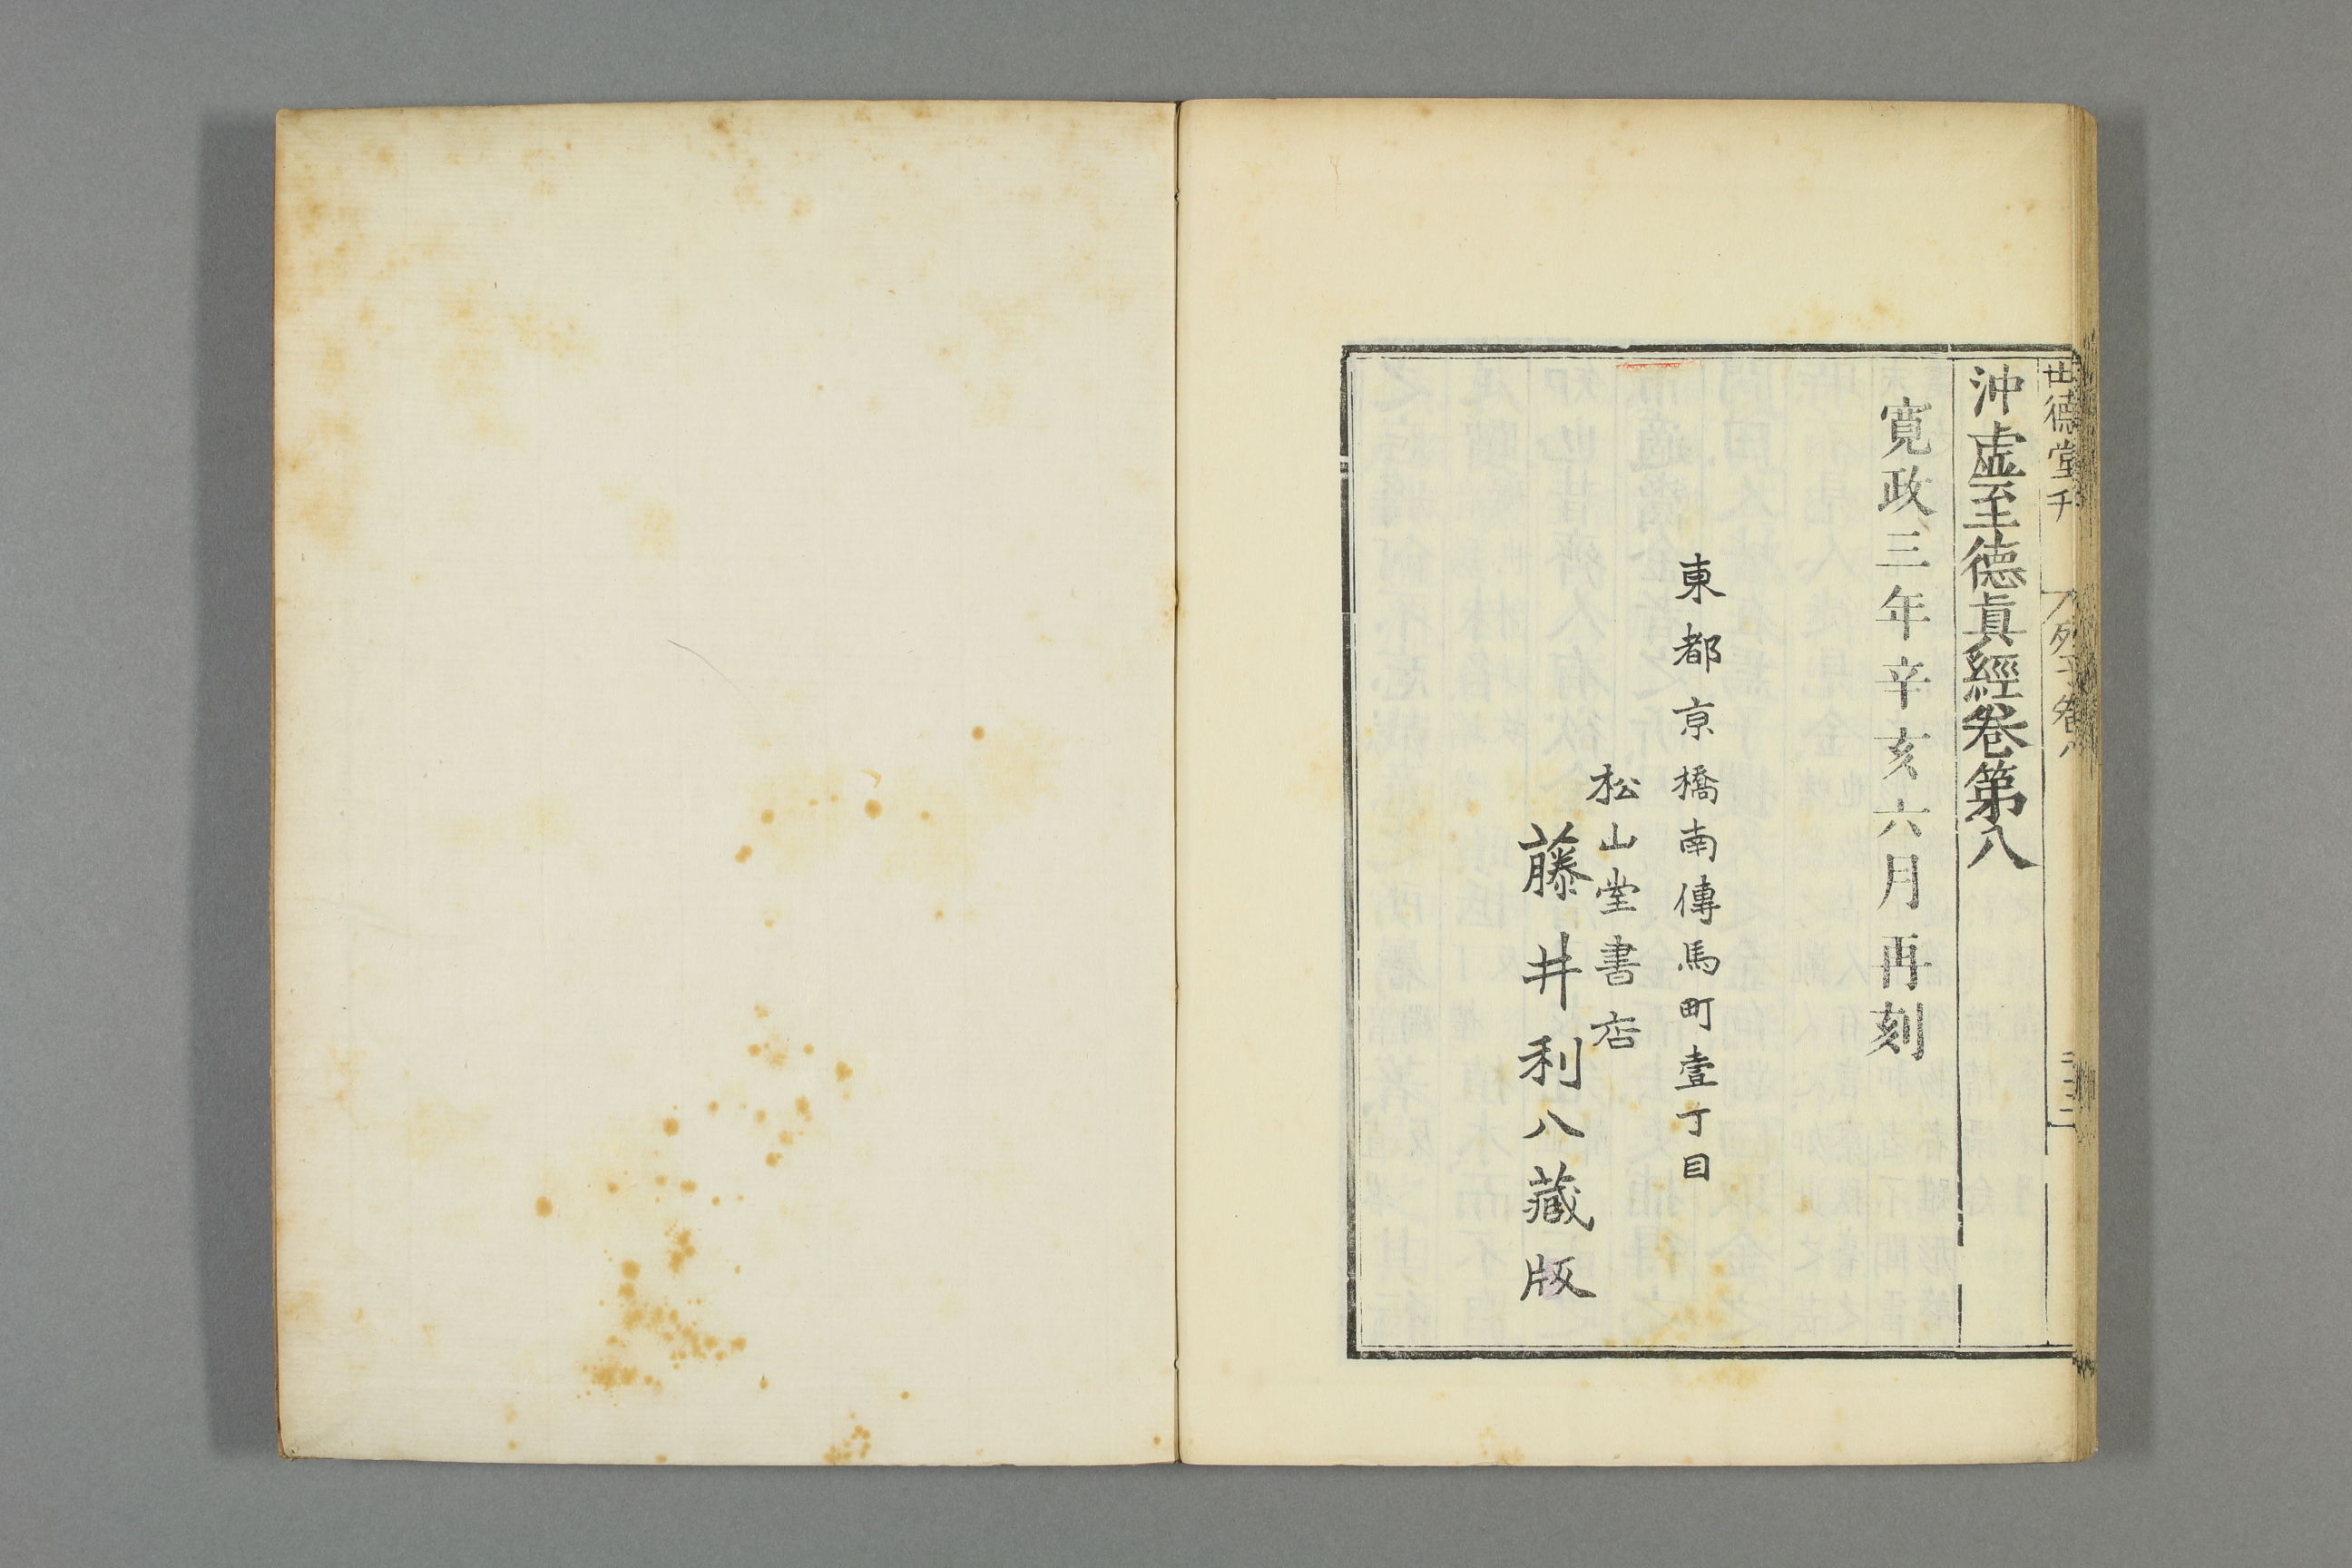 世德堂刊
列子卷八
沖虛至德眞經卷第八
寬政三年辛亥六月再刻
東都京橋南傳馬町壹丁目
松山堂書店
藤井利八藏版